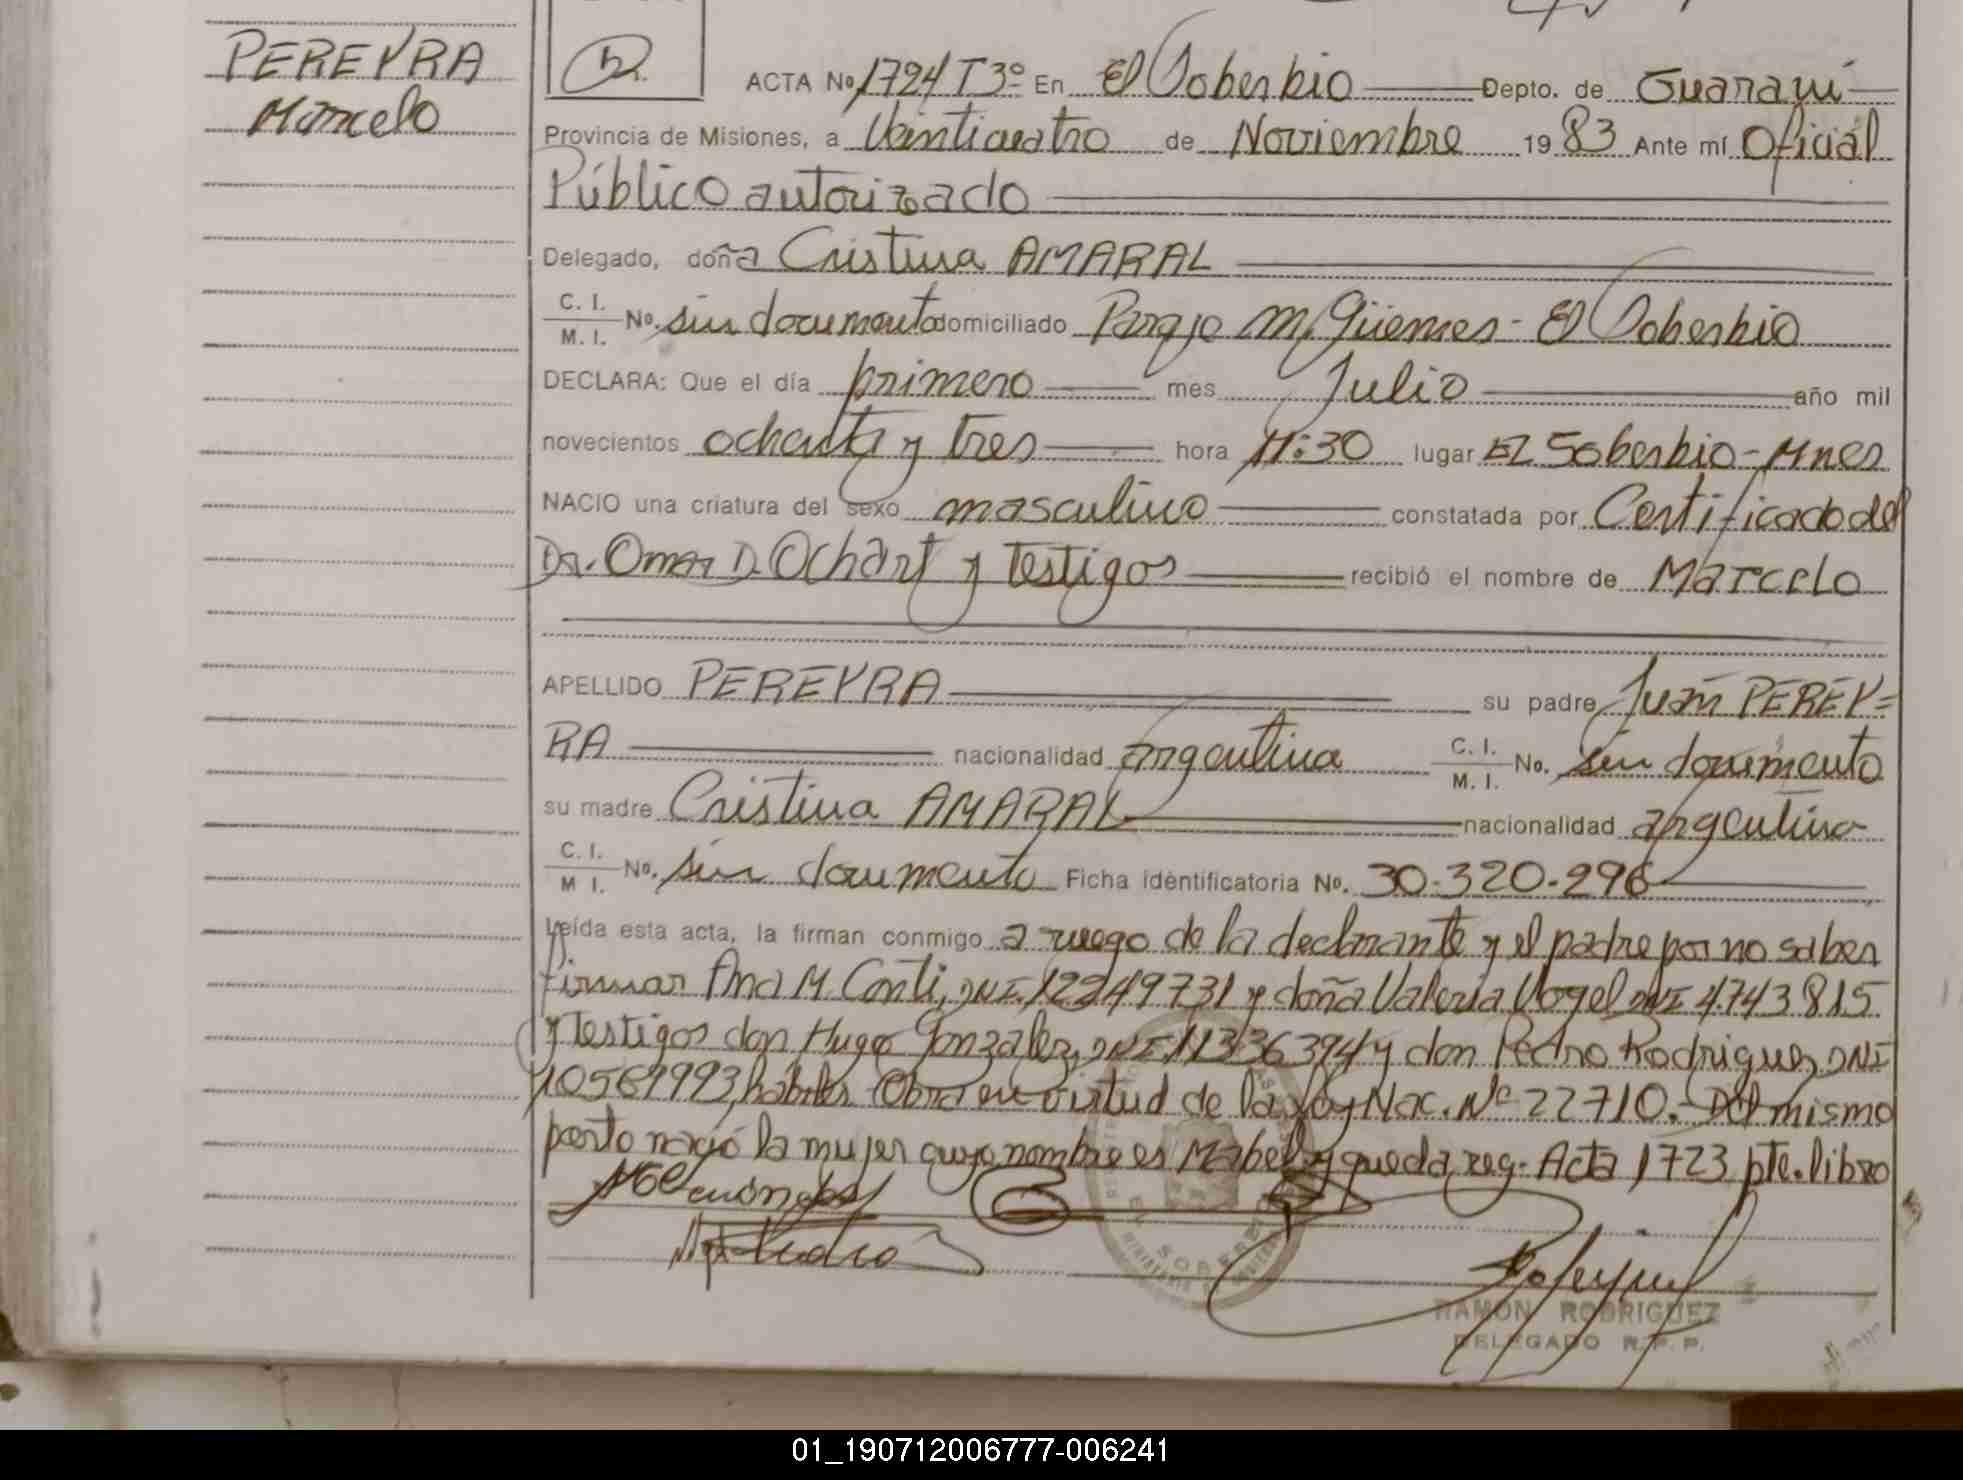 PEREYRA
Marcelo
ACTA No. 1724 T 3º En El Soberbio Depto. de Guaraní
Provincia de Misiones, a Veinticuatro de Noviembre 1983 Ante mí Oficial
Público autorizado
Delegado, doña Cristina AMARAL
C. I.
M. I. No. sin documento domiciliado Paraje M. Güemes - El Soberbio
DECLARA: Que el día primero mes Julio año mil
novecientos ochenta y tres hora 11:30 lugar El Soberbio - Mnes
NACIO una criatura del sexo masculino constatada por Certificado del
Dr. Omar D. Ochart y testigos recibió el nombre de Marcelo
APELLIDO PEREYRA su padre Juan PEREY=
RA nacionalidad argentina C. I.
M. I. No. sin documento
su madre Cristina AMARAL nacionalidad argentina
C. I.
M I. No. sin documento Ficha identificatoria No. 30.320.296
Leída esta acta, la firman conmigo a ruego de la declarante y el padre por no saber
firmar Ana M. Conti, DNI. 12249731 y doña Valeria Vogel DNI 4.743.815
y testigos don Hugo Gonzalez, DNI 11336394 y don Pedro Rodriguez, DNI
10561993, hábiles. Obra en virtud de la Ley Nac. Nº 22710.- Del mismo
parto nació la mujer cuyo nombre es Mabel y queda reg. Acta 1723 pte. libro
SOBERBIO
RAMON RODRIGUEZ
DELEGADO R.P.P.
01_190712006777-006241